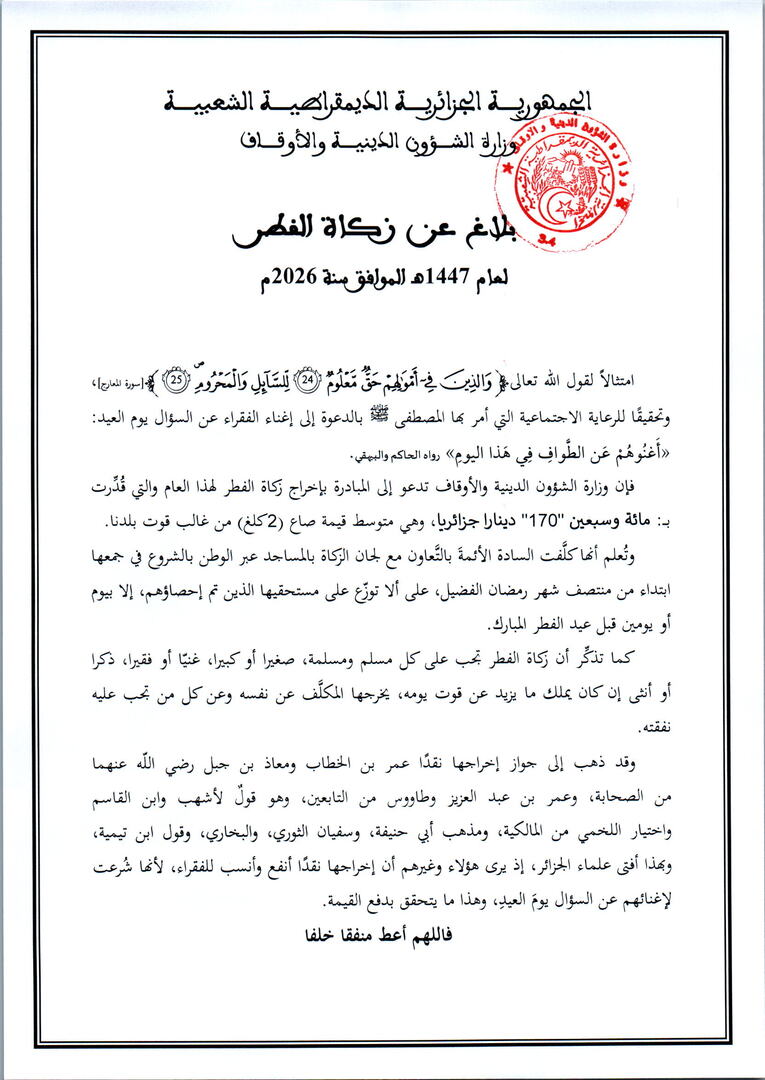 الجمهورية الجزائرية الديمقراطية الشعبية
وزارة الشؤون الدينية والأوقاف
وزارة الشؤون الدينية والأوقاف
الجمهورية الجزائرية الديمقراطية الشعبية
34
بلاغ عن زكاة الفطر
لعام 1447هـ الموافق سنة 2026م
امتثالاً لقول الله تعالى ﴿وَالذِينَ فِےٓ أَمْوَٰلِهِمْ حَقّٞ مَّعْلُومٞ (24) لِّلسَّآئِلِ وَالْمَحْرُومِۖ (25)﴾ [سورة المعارج]،
وتحقيقًا للرعاية الاجتماعية التي أمر بها المصطفى ﷺ بالدعوة إلى إغناء الفقراء عن السؤال يوم العيد:
«أَغْنُوهُمْ عَن الطَّوافِ فِي هَذا اليومِ» رواه الحاكم والبيهقي.
فإن وزارة الشؤون الدينية والأوقاف تدعو إلى المبادرة بإخراج زكاة الفطر لهذا العام والتي قُدِّرت
بـ: مائة وسبعين "170" دينارا جزائريا، وهي متوسط قيمة صاع (2كلغ) من غالب قوت بلدنا.
وتُعلم أنها كلَّفت السادة الأئمةَ بالتَّعاون مع لجان الزكاة بالمساجد عبر الوطن بالشروع في جمعها
ابتداء من منتصف شهر رمضان الفضيل، على ألا توزّع على مستحقيها الذين تم إحصاؤهم، إلا بيوم
أو يومين قبل عيد الفطر المبارك.
كما تذكِّر أن زكاة الفطر تجب على كل مسلم ومسلمة، صغيرا أو كبيرا، غنيّا أو فقيرا، ذكرا
أو أنثى إن كان يملك ما يزيد عن قوت يومه، يخرجها المكلَّف عن نفسه وعن كل من تجب عليه
نفقته.
وقد ذهب إلى جواز إخراجها نقدًا عمر بن الخطاب ومعاذ بن جبل رضي الله عنهما
من الصحابة، وعمر بن عبد العزيز وطاووس من التابعين، وهو قولٌ لأشهب وابن القاسم
واختيار اللخمي من المالكية، ومذهب أبي حنيفة، وسفيان الثوري، والبخاري، وقول ابن تيمية،
وبهذا أفتى علماء الجزائر، إذ يرى هؤلاء وغيرهم أن إخراجها نقدًا أنفع وأنسب للفقراء، لأنها شُرعت
لإغنائهم عن السؤال يومَ العيدِ، وهذا ما يتحقق بدفع القيمة.
فاللهم أعط منفقا خلفا